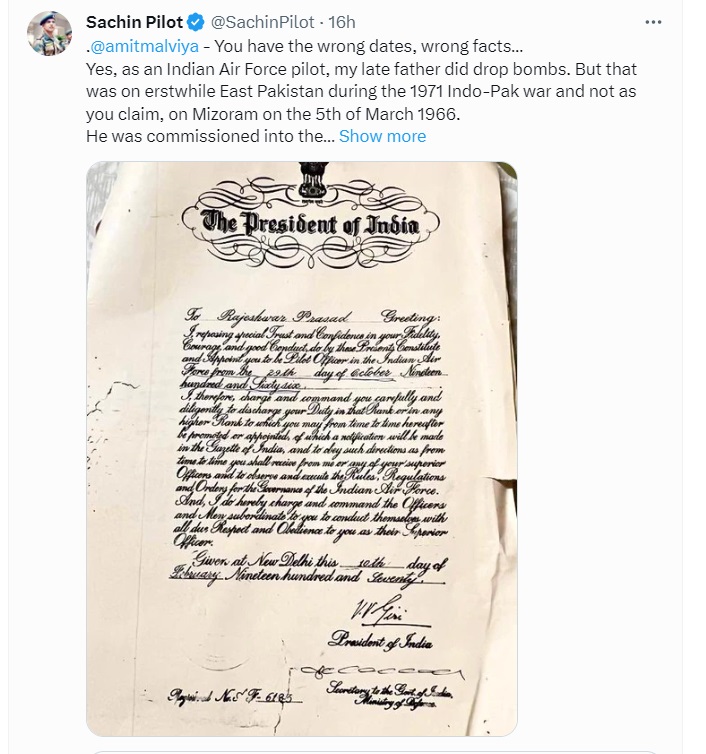 Sachin Pilot @SachinPilot · 16h
.@amitmalviya - You have the wrong dates, wrong facts...
Yes, as an Indian Air Force pilot, my late father did drop bombs. But that
was on erstwhile East Pakistan during the 1971 Indo-Pak war and not as
you claim, on Mizoram on the 5th of March 1966.
He was commissioned into the... Show more
The President of India
To Rajeshwar Prasad Greeting:
I, reposing special Trust and Confidence in your Fidelity,
Courage, and good Conduct, do by these Presents Constitute
and Appoint you to be Pilot Officer in the Indian Air
Force from the 29th day of October Nineteen
hundred and Sixty six.
I, therefore, charge and command you carefully and
diligently to discharge your Duty in that Rank or in any
higher Rank to which you may from time to time hereafter
be promoted or appointed, of which a notification will be made
in the Gazette of India, and to obey such directions as from
time to time you shall receive from me or any of your superior
Officers and to observe and execute the Rules, Regulations
and Orders for the Governance of the Indian Air Force.
And, I do hereby charge and command the Officers
and Men subordinate to you to conduct themselves with
all due Respect and Obedience to you as their Superior
Officer.
Given at New Delhi this 10th day of
February Nineteen hundred and Seventy.
V.V. Giri
President of India
Secretary to the Govt. of India,
No. F-
Ministry of Defence.